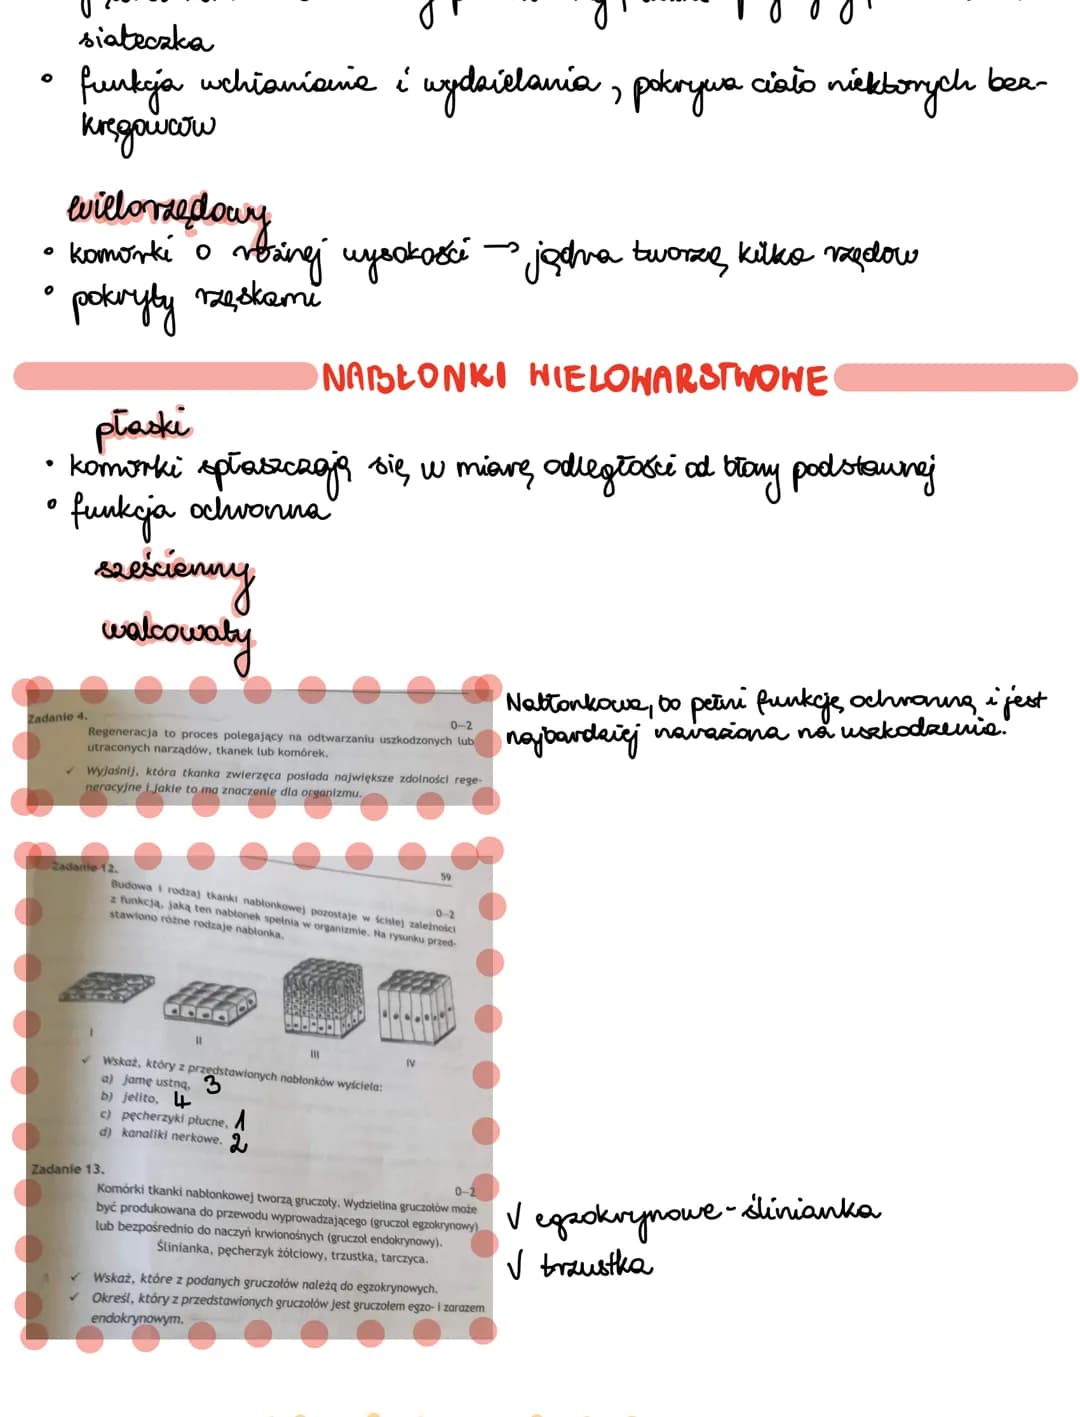 siateczka
• funkcja wchłaniania i wydzielania, pokrywa ciało niektórych bez-
kręgowców
wielorzędowy
• komórki o różnej wysokości → jądra tworzą kilka rzędów
• pokryty rzęskami
NABŁONKI WIELOWARSTWOWE
płaski
• komórki spłaszczają się w miarę odległości od błony podstawnej
• funkcja ochronna
sześcienny
walcowaty
Zadanie 4.
0-2
Regeneracja to proces polegający na odtwarzaniu uszkodzonych lub
utraconych narządów, tkanek lub komórek.
✓ Wyjaśnij, która tkanka zwierzęca posiada największe zdolności rege-
neracyjne i jakie to ma znaczenie dla organizmu.
Nabłonkowa, bo pełni funkcję ochronną i jest
najbardziej narażona na uszkodzenia.
59
Zadanie 12.
0-2
Budowa i rodzaj tkanki nabłonkowej pozostaje w ścisłej zależności
z funkcją, jaką ten nabłonek spełnia w organizmie. Na rysunku przed-
stawiono różne rodzaje nabłonka.
I II III IV
✓ Wskaż, który z przedstawionych nabłonków wyściela:
a) jamę ustną, 3
b) jelito, 4
c) pęcherzyki płucne, 1
d) kanaliki nerkowe. 2
Zadanie 13.
0-2
Komórki tkanki nabłonkowej tworzą gruczoły. Wydzielina gruczołów może
być produkowana do przewodu wyprowadzającego (gruczoł egzokrynowy)
lub bezpośrednio do naczyń krwionośnych (gruczoł endokrynowy).
Ślinianka, pęcherzyk żółciowy, trzustka, tarczyca.
✓ Wskaż, które z podanych gruczołów należą do egzokrynowych.
✓ Określ, który z przedstawionych gruczołów jest gruczołem egzo- i zarazem
endokrynowym.
√ egzokrynowe - ślinianka
√ trzustka